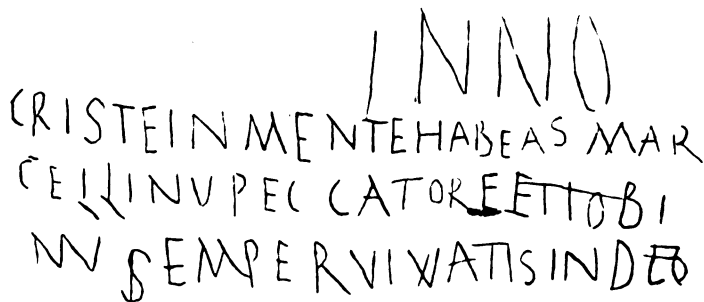 INNO
CRISTEINMENTEHABEASMAR
CELLINUPECCATOREETIOBI
NVSEMPERVIVATISINDEO